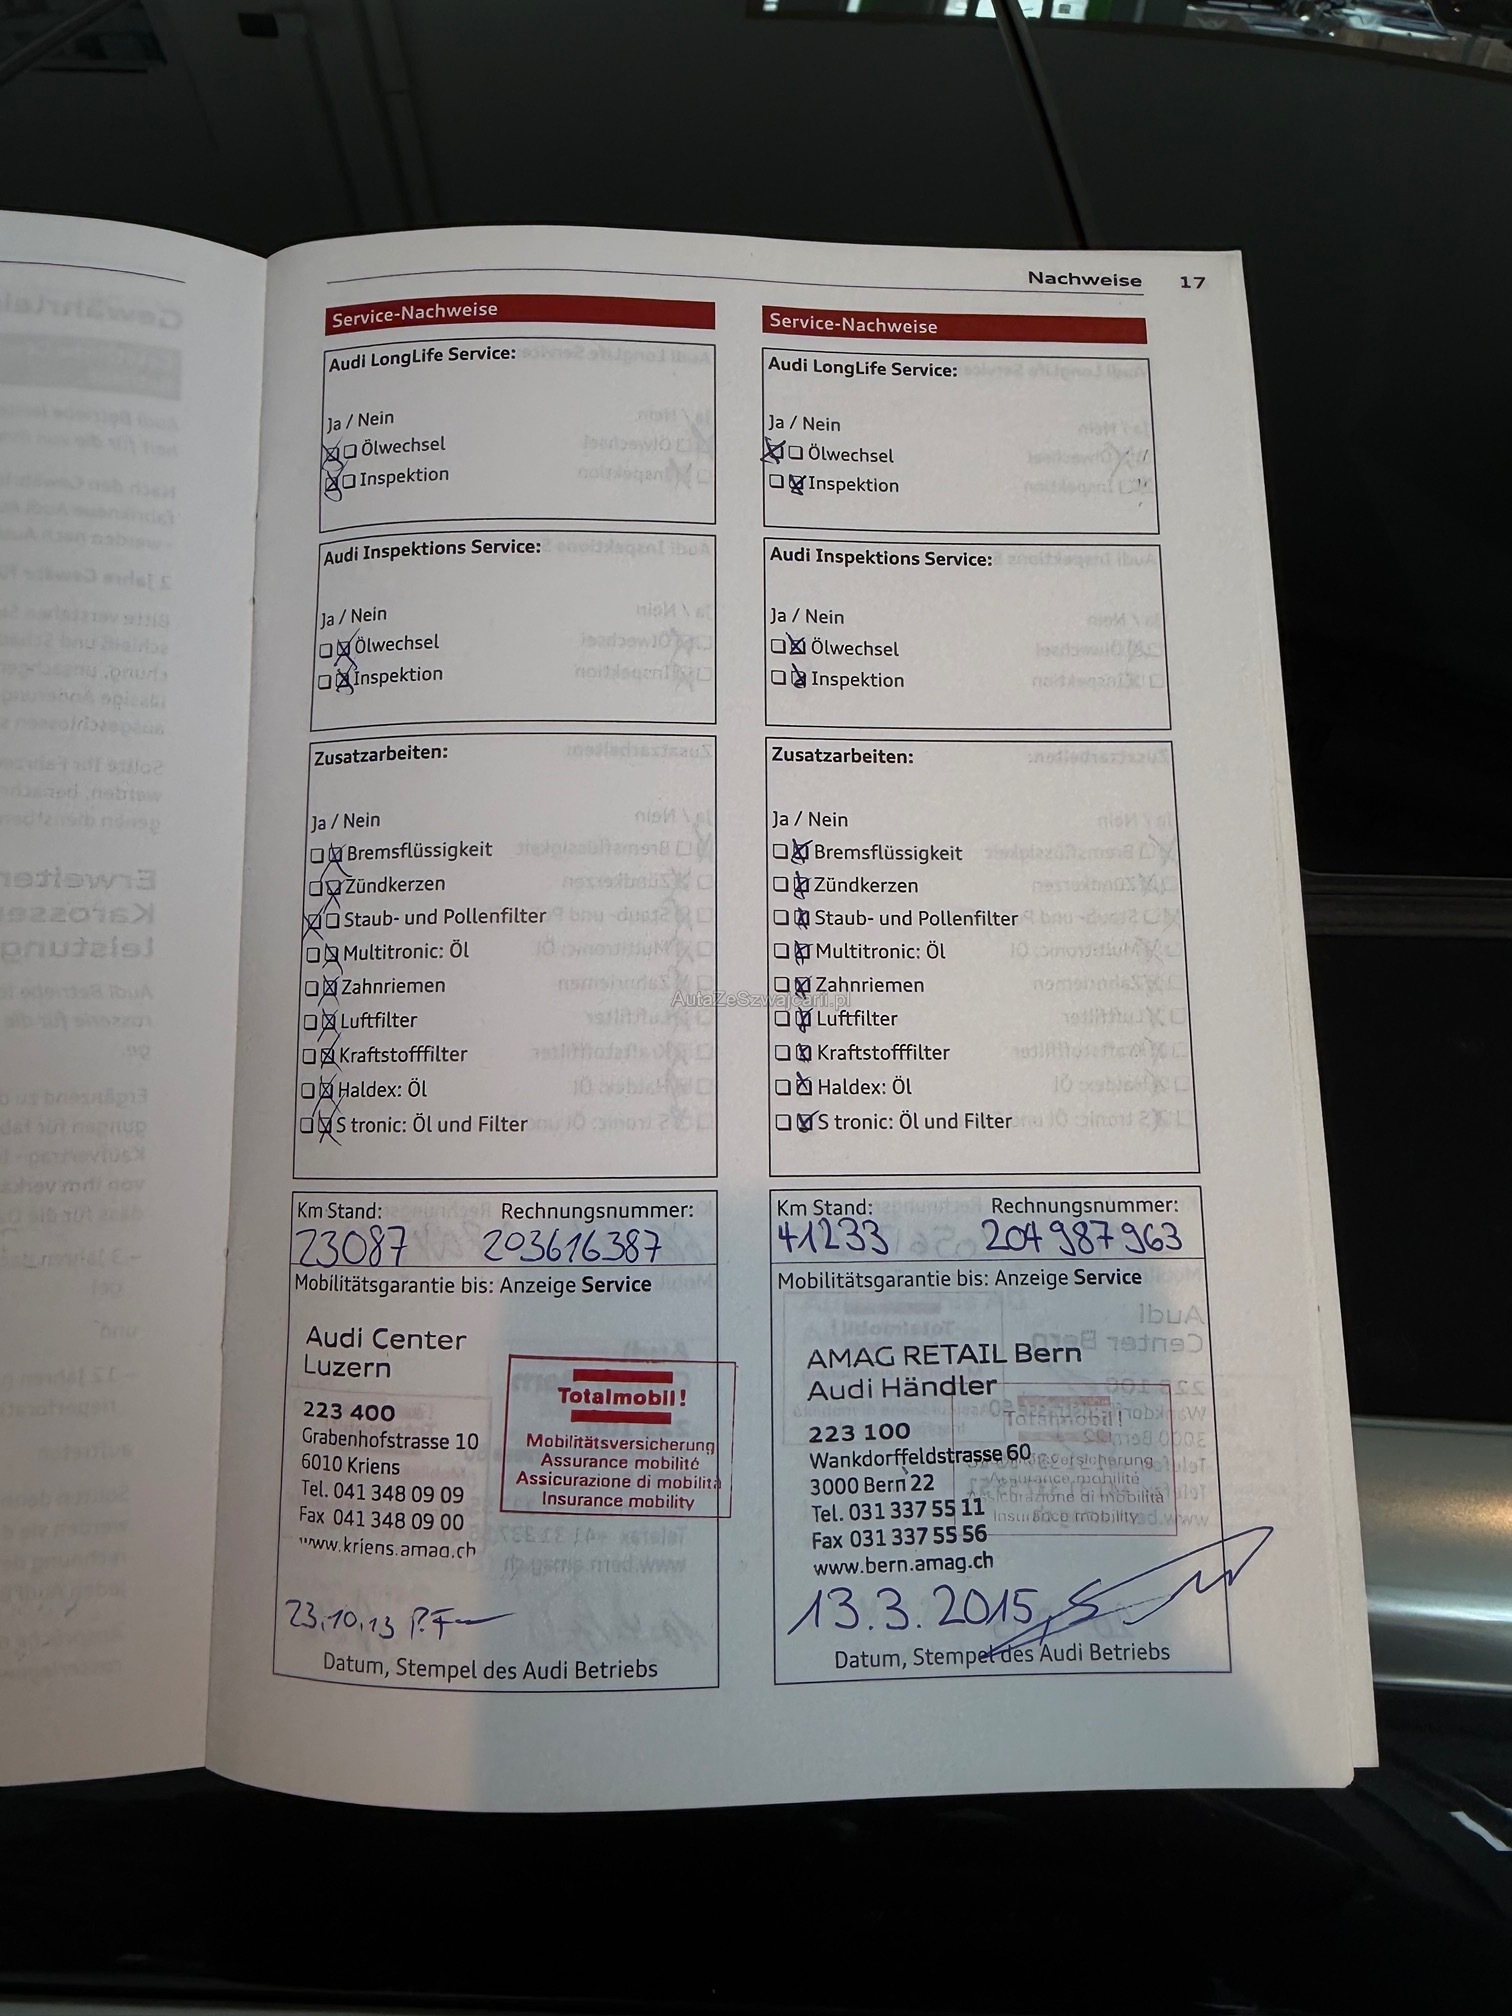 Nachweise 17
Service-Nachweise
Audi LongLife Service:
Ja / Nein
Ölwechsel
Inspektion
Audi Inspektions Service:
Ja / Nein
Ölwechsel
Inspektion
Zusatzarbeiten:
Ja / Nein
Bremsflüssigkeit
Zündkerzen
Staub- und Pollenfilter
Multitronic: Öl
Zahnriemen
Luftfilter
Kraftstofffilter
Haldex: Öl
S tronic: Öl und Filter
Km Stand: Rechnungsnummer:
23087 203616387
Mobilitätsgarantie bis: Anzeige Service
Audi Center
Luzern
223 400
Grabenhofstrasse 10
6010 Kriens
Tel. 041 348 09 09
Fax 041 348 09 00
www.kriens.amag.ch
Totalmobil!
Mobilitätsversicherung
Assurance mobilité
Assicurazione di mobilità
Insurance mobility
23.10.13
Datum, Stempel des Audi Betriebs
Service-Nachweise
Audi LongLife Service:
Ja / Nein
Ölwechsel
Inspektion
Audi Inspektions Service:
Ja / Nein
Ölwechsel
Inspektion
Zusatzarbeiten:
Ja / Nein
Bremsflüssigkeit
Zündkerzen
Staub- und Pollenfilter
Multitronic: Öl
Zahnriemen
Luftfilter
Kraftstofffilter
Haldex: Öl
S tronic: Öl und Filter
Km Stand: Rechnungsnummer:
41233 204987963
Mobilitätsgarantie bis: Anzeige Service
AMAG RETAIL Bern
Audi Händler
223 100
Wankdorffeldstrasse 60
3000 Bern 22
Tel. 031 337 55 11
Fax 031 337 55 56
www.bern.amag.ch
Totalmobil!
Assurance mobilité
Assicurazione di mobilità
Insurance mobility
13.3.2015
Datum, Stempel des Audi Betriebs
AutaZeSzwajcarii.pl